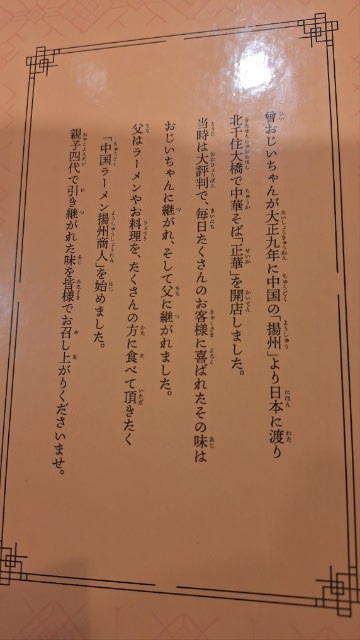 曾おじいちゃんが大正九年に中国の「揚州」より日本に渡り
北千住大橋で中華そば「正華」を開店しました。
当時は大評判で、毎日たくさんのお客様に喜ばれたその味は
おじいちゃんに継がれ、そして父に継がれました。
父はラーメンやお料理を、たくさんの方に食べて頂きたく
「中国ラーメン揚州商人」を始めました。
親子四代で引き継がれた味を皆様でお召し上がりくださいませ。